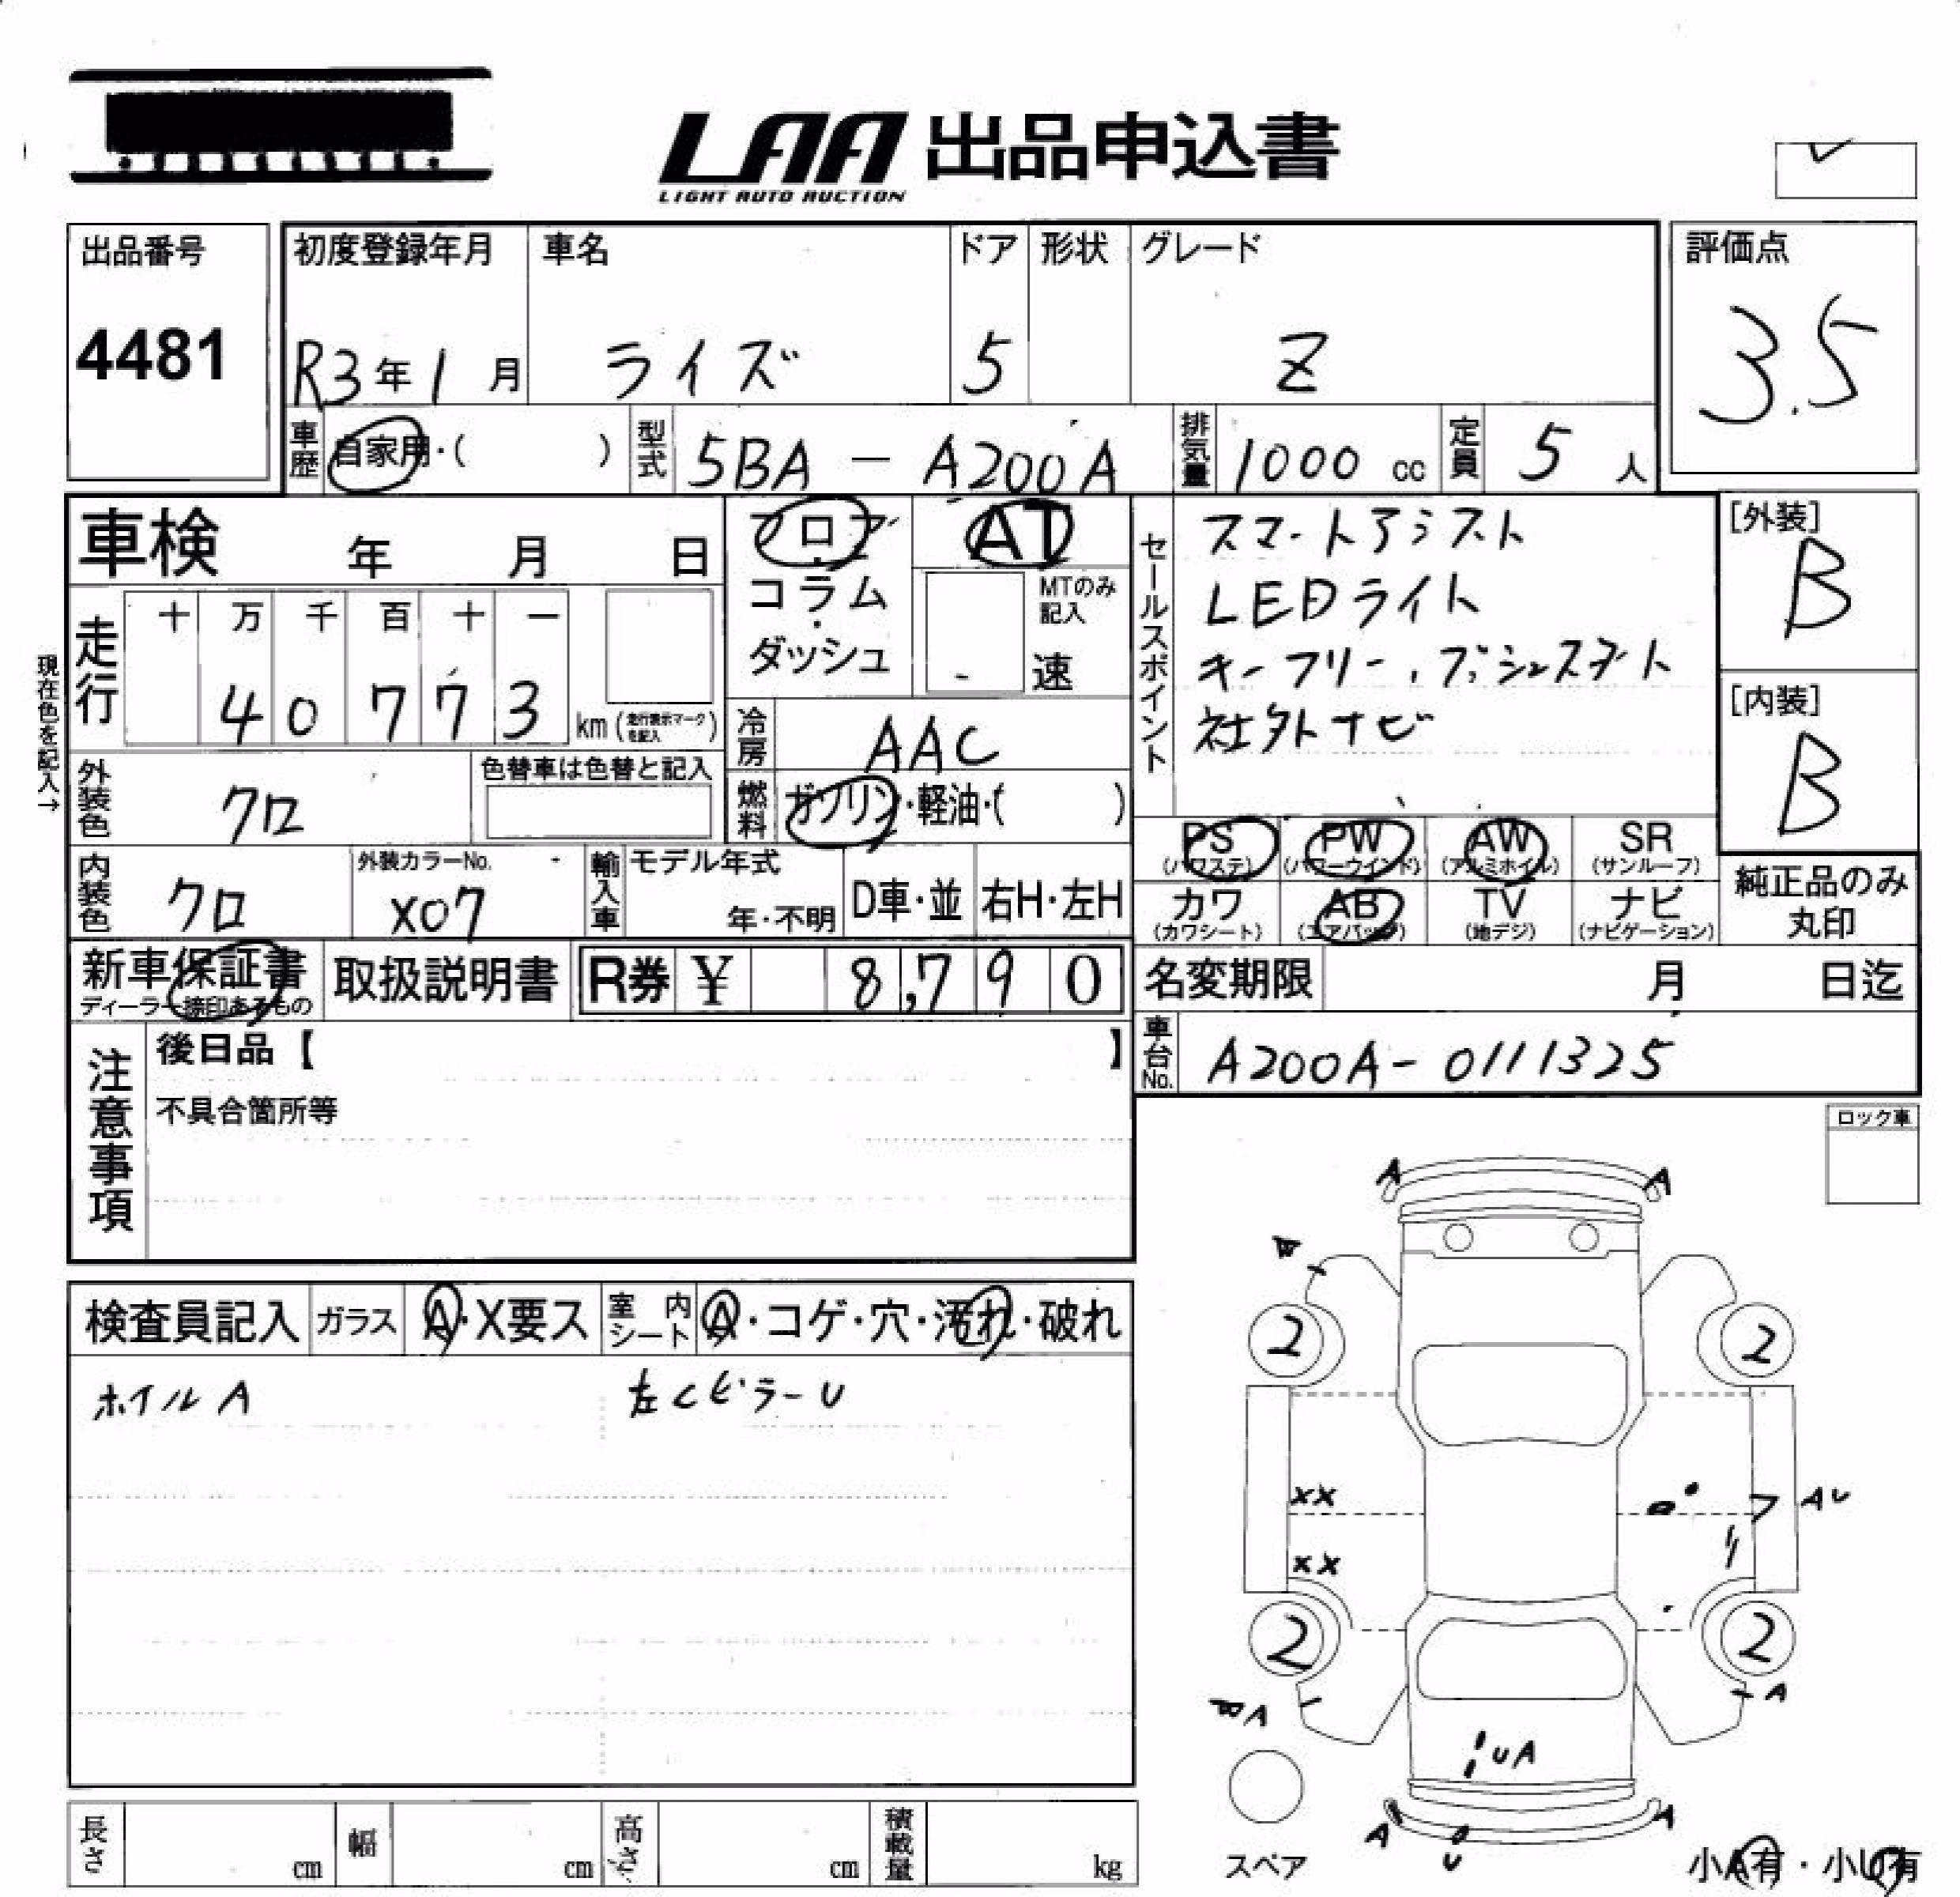 LAA 出品申込書
LIGHT AUTO AUCTION
出品番号
4481
初度登録年月
R3年1月
車名
ライズ
ドア
5
形状
グレード
Z
評価点
3.5
車歴
自家用・( )
型式
5BA - A200A
排気量
1000 cc
定員
5 人
車検 年 月 日
フロア
・
コラム
・
ダッシュ
AT
MTのみ
記入
速
セールスポイント
スマートアシスト
LEDライト
キーフリー、プッシュスタート
社外ナビ
[外装]
B
[内装]
B
現在色を記入→
走行
十 万 千 百 十 一
4 0 7 7 3 km (走行表示マークを記入)
冷房
AAC
燃料
ガソリン・軽油・( )
外装色
クロ
色替車は色替と記入
内装色
クロ
外装カラーNo.
X07
輸入車
モデル年式
年・不明
D車・並
右H・左H
PS
(パワステ)
PW
(パワーウインド)
AW
(アルミホイル)
SR
(サンルーフ)
カワ
(カワシート)
AB
(エアバッグ)
TV
(地デジ)
ナビ
(ナビゲーション)
純正品のみ
丸印
新車保証書
ディーラー捺印あるもの
取扱説明書
R券 ¥ 8,790
名変期限 月 日迄
車台No.
A200A-0111325
注意事項
後日品【 】
不具合箇所等
ロック車
検査員記入
ガラス
A・X要ス
室内
シート
A・コゲ・穴・汚れ・破れ
ホイルA
左CピラーU
A A
2 2
XX
AU
XX
2 2
A
A
UA
A A
U
スペア
小A有・小U有
長さ cm
幅 cm
高さ cm
積載量 kg